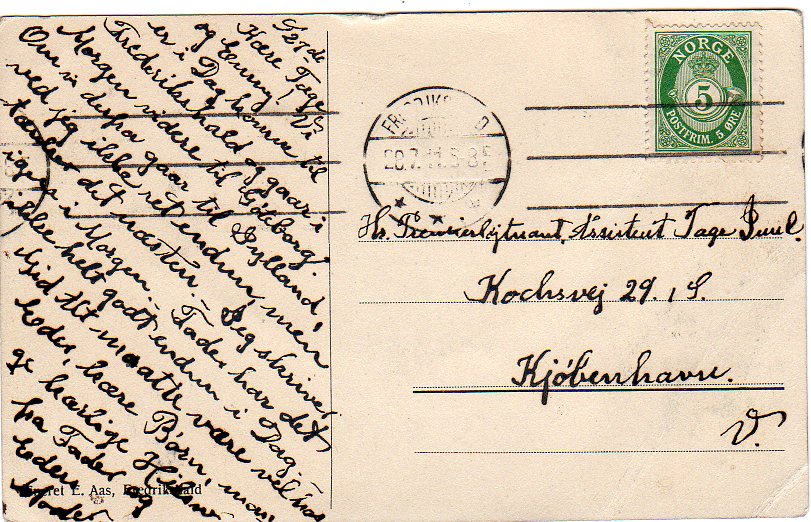 d. 27de
Kære Tage
og Emmy! Vi
er i Dag komne til
Frederikshald og gaar i
Morgen videre til Göteborg.
Om vi derfra gaar til Jylland,
ved jeg ikke ret endnu, men
tænker det næsten. Jeg skriver
igen i Morgen. Fader har det
ikke helt godt endnu i Dag.
Gid det maatte være vel hos
Eder, kære Børn, man
ge kærlige Hilsner
fra Fader og
Eders
Moder
Eneret E. Aas, Fredrikshald
NORGE
5
POSTFRIM. 5 ØRE
28.7.11.5-8E
Hr. Premierløjtnant, Assistent Tage Juul.
Kochsvej 29. 1 S.
Kjøbenhavn.
V.